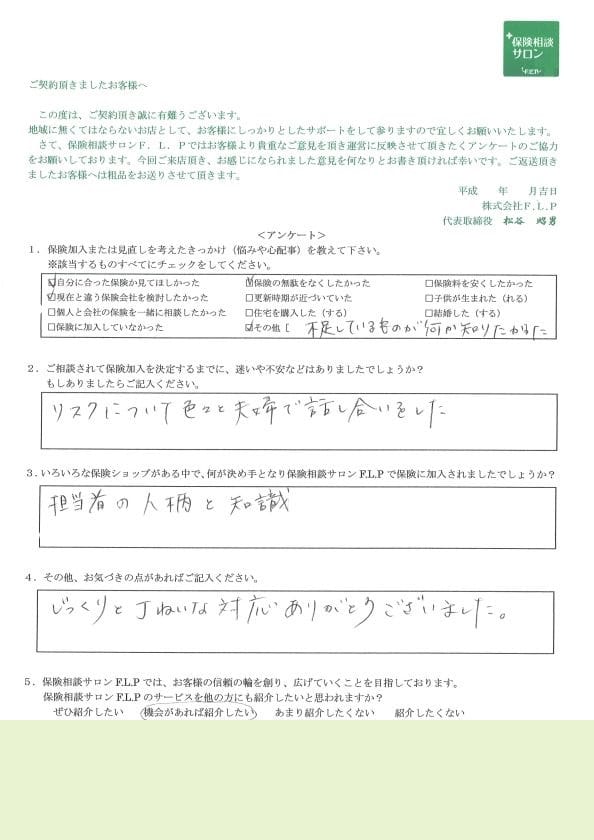 +保険相談
サロン
F.L.P
ご契約頂きましたお客様へ
この度は、ご契約頂き誠に有難うございます。
地域に無くてはならないお店として、お客様にしっかりとしたサポートをして参りますので宜しくお願いいたします。
さて、保険相談サロンF．L．Pではお客様より貴重なご意見を頂き運営に反映させて頂きたくアンケートのご協力
をお願いしております。今回ご来店頂き、お感じになられました意見を何なりとお書き頂ければ幸いです。ご返送頂き
ましたお客様へは粗品をお送りさせて頂きます。
平成　　年　　月吉日
株式会社F.L.P
代表取締役　松谷　昭男
＜アンケート＞
１．保険加入または見直しを考えたきっかけ（悩みや心配事）を教えて下さい。
※該当するものすべてにチェックをしてください。
☑自分に合った保険か見てほしかった　☑保険の無駄をなくしたかった　□保険料を安くしたかった
☑現在と違う保険会社を検討したかった　□更新時期が近づいていた　□子供が生まれた（れる）
□個人と会社の保険を一緒に相談したかった　□住宅を購入した（する）　□結婚した（する）
□保険に加入していなかった　☑その他［ 不足しているものが何か知りたかった
２．ご相談されて保険加入を決定するまでに、迷いや不安などはありましたでしょうか？
もしありましたらご記入ください。
リスクについて色々と夫婦で話し合いをした
３．いろいろな保険ショップがある中で、何が決め手となり保険相談サロンF.L.Pで保険に加入されましたでしょうか？
担当者の人柄と知識
４．その他、お気づきの点があればご記入ください。
じっくりと丁ねいな対応ありがとうございました。
５．保険相談サロンF.L.Pでは、お客様の信頼の輪を創り、広げていくことを目指しております。
保険相談サロンF.L.Pのサービスを他の方にも紹介したいと思われますか？
ぜひ紹介したい　機会があれば紹介したい　あまり紹介したくない　紹介したくない